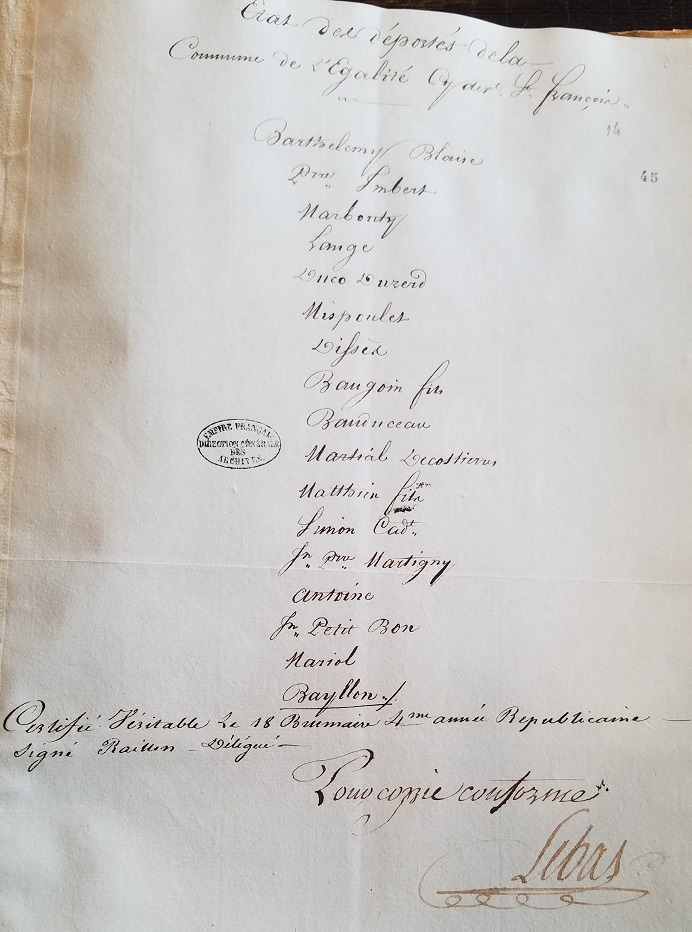 Etat des déportés dela
Commune de L'Egalité Cy devt. St. françois.
14
45
Barthelemy Blaise
Prre Imbert
Marbouty
Lange
Duco Duzerd
Mispoulet
Disses
Baugoin fils
Martial Decostieres
Matthieu fils
Simon Cadt.
Jn. Prre Martigny
Antoine
Jn. Petit Bon
Mariol
Bayllon ./
EMPIRE FRANÇAIS
DIRECTION GÉNÉRALE
DES
ARCHIVES.
Certifié Véritable Le 18 Brumaire 4me année Republicaine
Signé Raillon Délégué
Pour copie conforme
Lebas